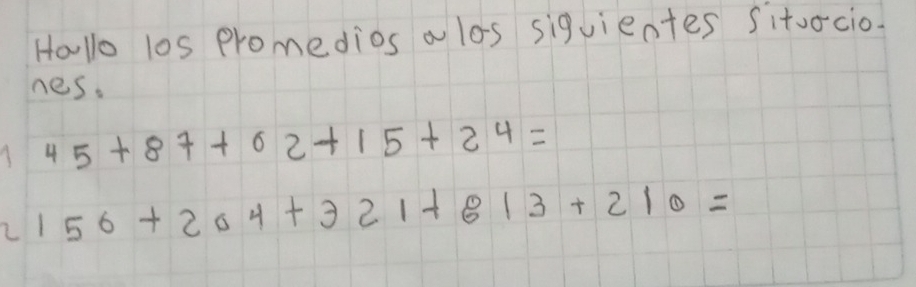 Hallo los promedios a los siguientes situocio-
nes.
1 45+87+62+15+24=
2 156+204+321+813+210=